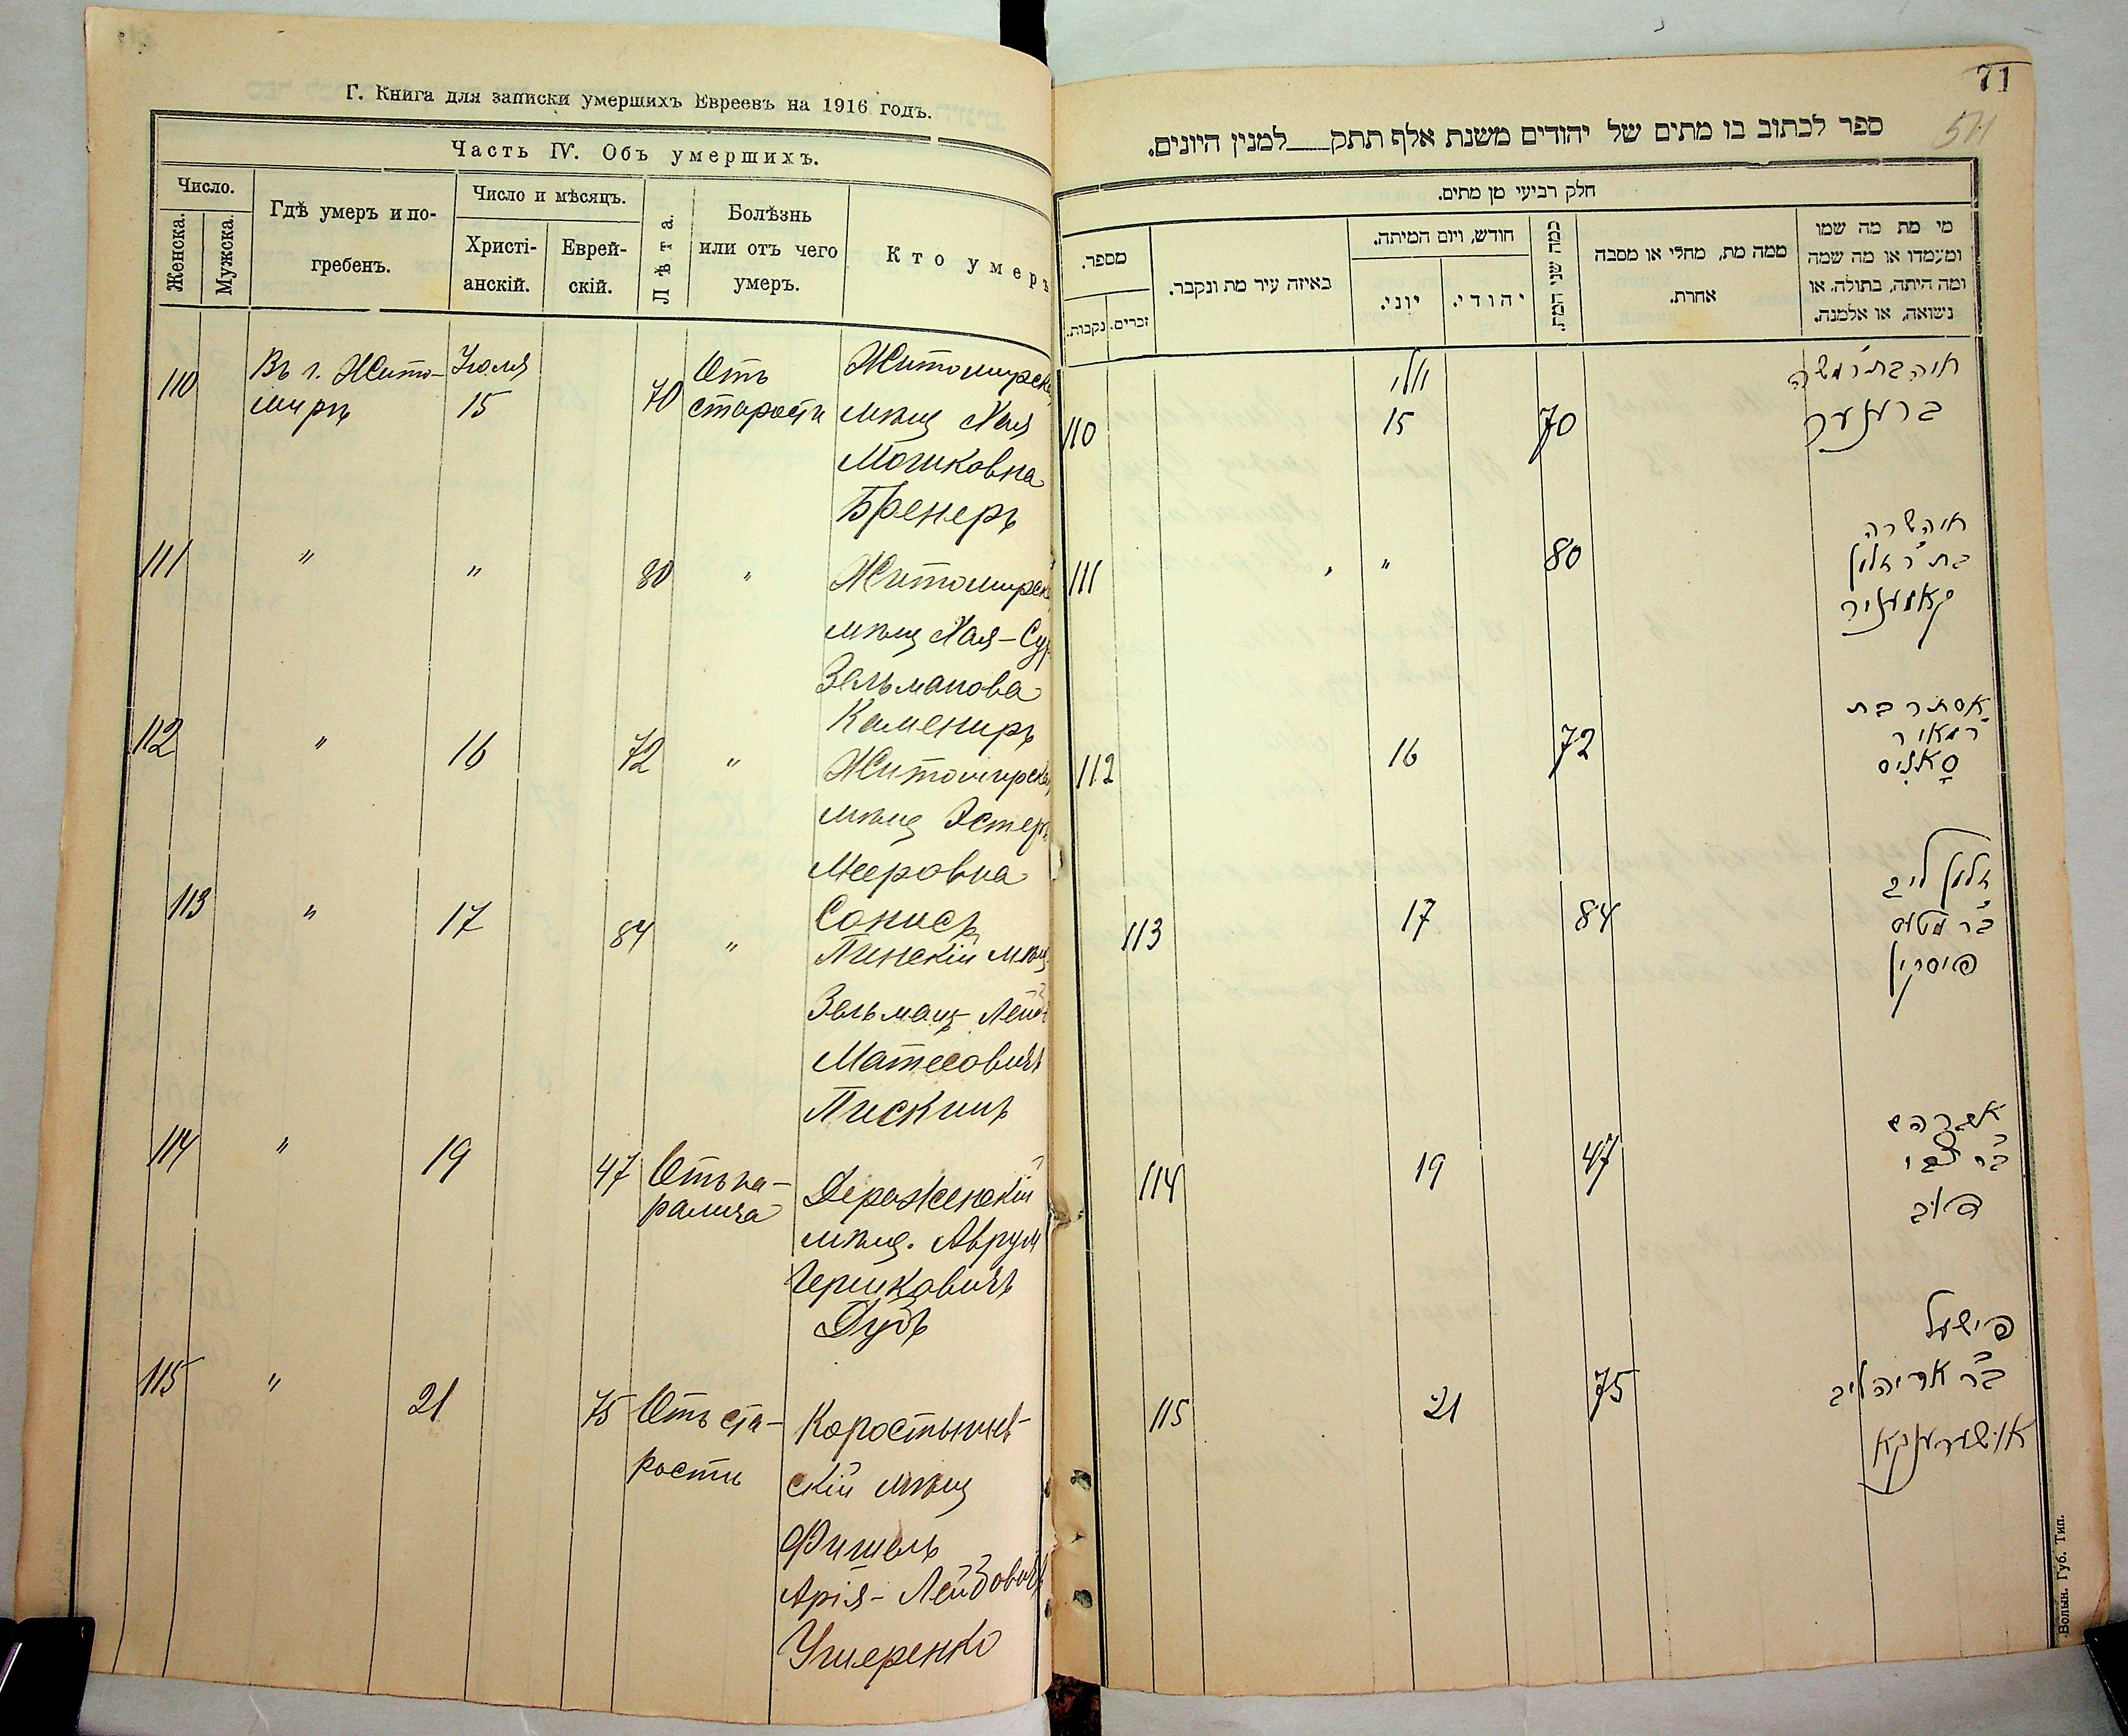 Г. Книга для записки умершихъ Евреевъ на 1916 годъ.
Часть IV. Объ умершихъ.
Число.
Женска.
Мужска.
Гдѣ умеръ и по-
гребенъ.
Число и мѣсяцъ.
Христі-
анскій.
Еврей-
скій.
Лѣта.
Болѣзнь
или отъ чего
умеръ.
Кто умеръ
110
Въ г. Жито-
мирѣ
Іюля
15
70
Отъ
старости
Житомирск
мѣщ Хая
Мошковна
Бренеръ
111
"
"
80
"
Житомирск
мѣщ Хая-Сур
Зельманова
Камениръ
112
"
16
72
"
Житомирска
мѣщ Эстеръ
Мееровна
Сонисъ
113
"
17
84
"
Пинскій мѣщ
Зельманъ Лейб
Матесовичъ
Пискинъ
114
"
19
47
Отъ па-
ралича
Деражненскій
мѣщ. Аврум
Гершковичъ
Дубъ
115
"
21
75
Отъ ста-
рости
Коростышев-
скій мѣщ
Фишель
Арія-Лейбовичъ
Ушеренко
71
ספר לכתוב בו מתים של יהודים משנת אלף תתק למנין היונים.
חלק רביעי מן מתים.
מספר.
נקבות.
זכרים.
באיזה עיר מת ונקבר.
חודש, ויום המיתה.
יוני.
יהודי.
כמה שני המת.
ממה מת, מחלי או מסבה
אחרת.
מי מת מה שמו
ומעמדו או מה שמה
ומה היתה, בתולה, או
נשואה, או אלמנה.
110
יולי
15
70
חיה בת ר' משה
ברענער
111
"
"
80
חיה שרה
בת ר' זלמן
קאמעניר
112
16
72
אסתר בת
ר' מאיר
סאניס
113
17
84
זלמן ליב
ב"ר מטעס
פיסקין
114
19
47
ב"ר צבי
דוב
115
21
75
פישעל
ב"ר אריה ליב
אושערענקא
Волын. Губ. Тип.